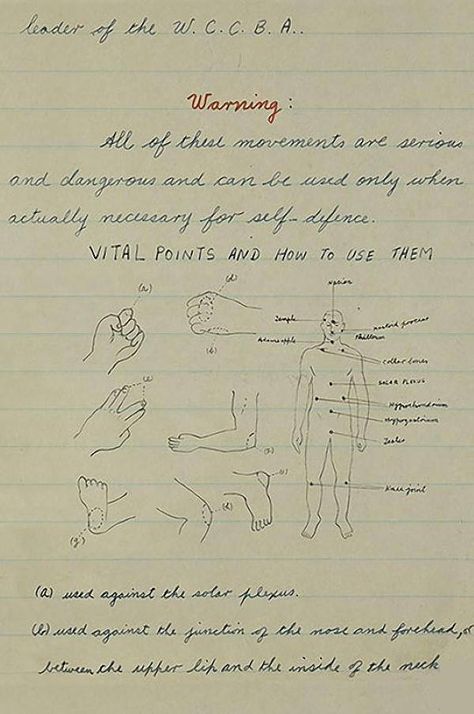 leader of the W. C. C. B A..
Warning:
All of these movements are serious
and dangerous and can be used only when
actually necessary for self-defence.
VITAL POINTS AND HOW TO USE THEM
(a)
(d)
(b)
Nasion
Temple
Mastoid process
Philtrum
Adams apple
Collar bones
SOLAR PLEXUS
Hypochondrium
Hypogastrium
Testes
Knee joint
(g)
(a) used against the solar plexus.
(b) used against the junction of the nose and forehead, or
between the upper lip and the inside of the neck